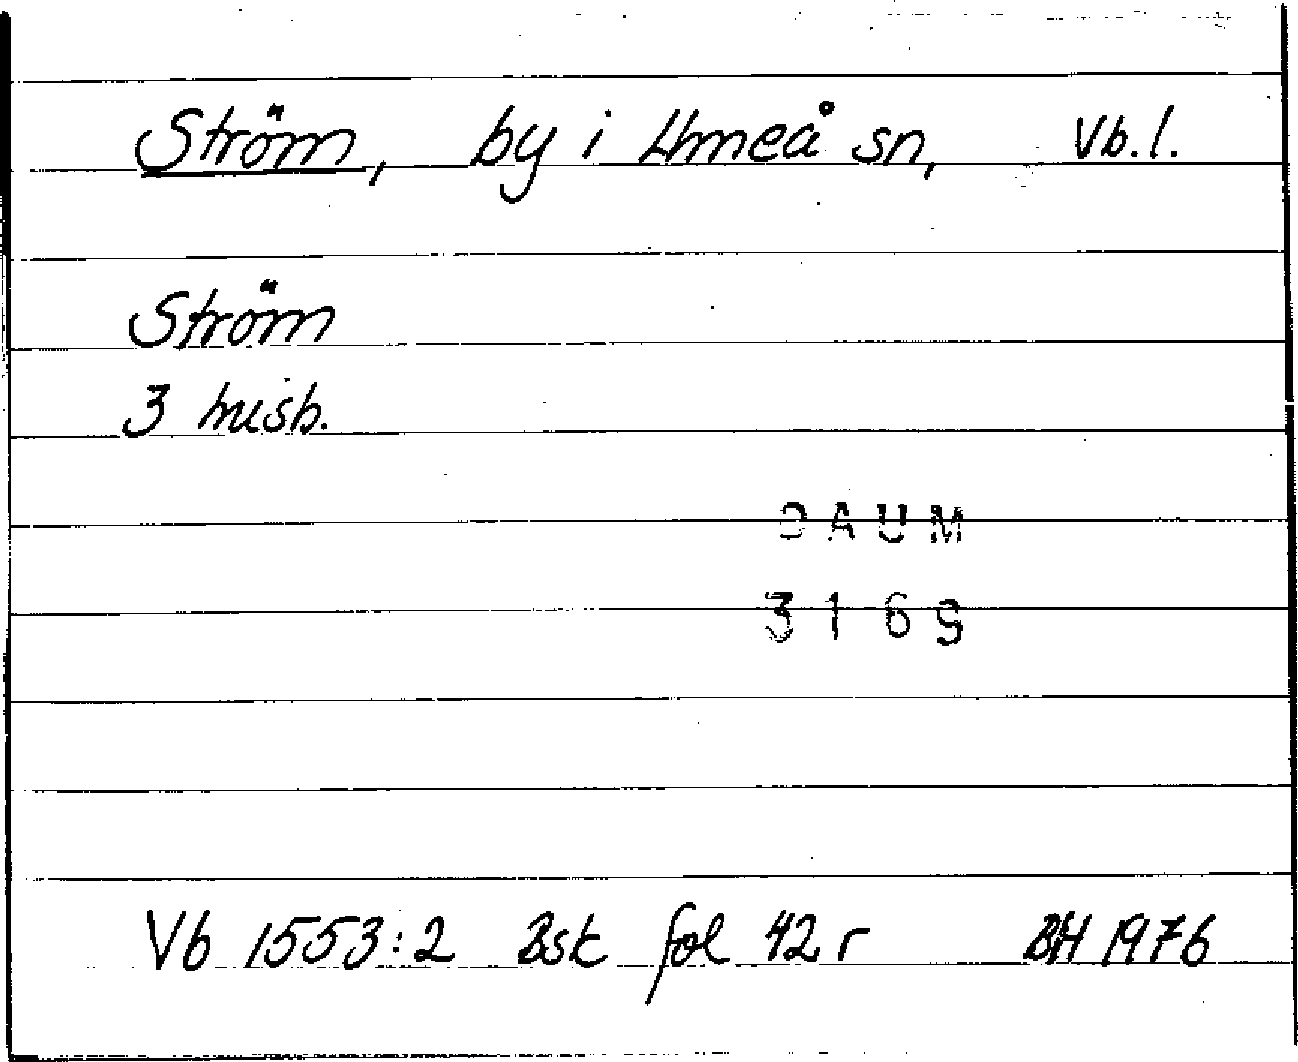 Ström, by i Umeå sn, Vb.l.
Ström
3 husb.
DAUM
3169
Vb 1553:2 Bsk fol 42 r BH 1976